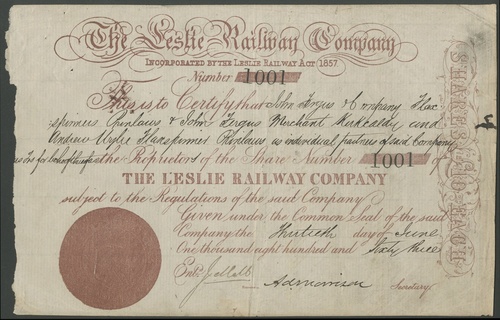 The Leslie Railway Company
INCORPORATED BY THE LESLIE RAILWAY ACT 1857.
Number 1001
This is to Certify that John Fergus & Company Flax
spinners Prinlaws, & John Fergus Merchant Kirkcaldy and
Andrew Wylie Flaxspinner Prinlaws as individual partners of said Company
the Proprietors of the Share Number 1001 of
THE LESLIE RAILWAY COMPANY
subject to the Regulations of the said Company
Given under the Common Seal of the said
Company the Thirtieth day of June
One thousand eight hundred and Sixty three
Entd.
A. D. Morrison Secretary.
SHARES £10 EACH